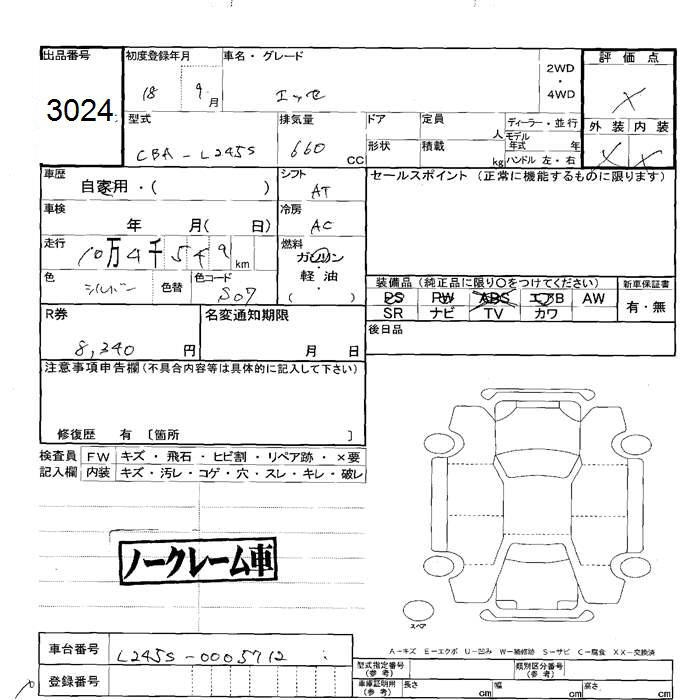 出品番号 初度登録年月 車名・グレード 2WD・4WD 評価点
3024 18 9月 エッセ X
型式 排気量 ドア 定員 ディーラー・並行 外装 内装
CBA-L245S 660 CC 人 モデル年式 年 X X
形状 積載 kg ハンドル 左・右
車歴 シフト セールスポイント (正常に機能するものに限ります)
自家用・( ) AT
車検 冷房
年 月( 日) AC
走行 燃料
10万4千549km ガソリン
軽・油
( )
色 色替 色コード
シルバー S07
装備品 (純正品に限り○をつけてください) 新車保証書
PS PW ABS エアB AW 有・無
SR ナビ TV カワ
R券 名変通知期限 後日品
8,340 円 月 日
注意事項申告欄 (不具合内容等は具体的に記入して下さい)
修復歴 有 〔箇所 〕
検査員 FW キズ・飛石・ヒビ割・リペア跡・×要
記入欄 内装 キズ・汚レ・コゲ・穴・スレ・キレ・破レ
ノークレーム車
スペア
A-キズ E-エクボ U-凹み W-補修跡 S-サビ C-腐食 XX-交換済
車台番号 L245S-0005712
型式指定番号(参考) 類別区分番号(参考)
登録番号
車庫証明用(参考) 長さ cm 幅 cm 高さ cm